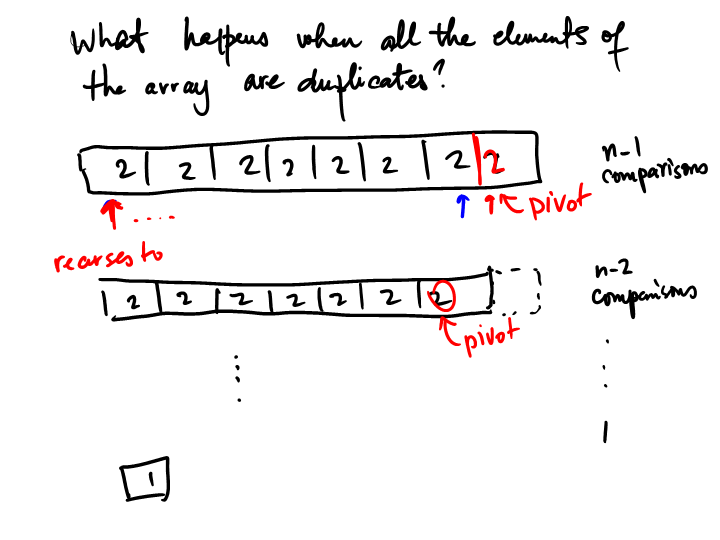 What happens when all the elements of
the array are duplicates?
2 2 2 2 2 2 2 2
n-1
comparisons
pivot
....
rearses to
n-2
comparisons
2 2 2 2 2 2 2
pivot
1
1